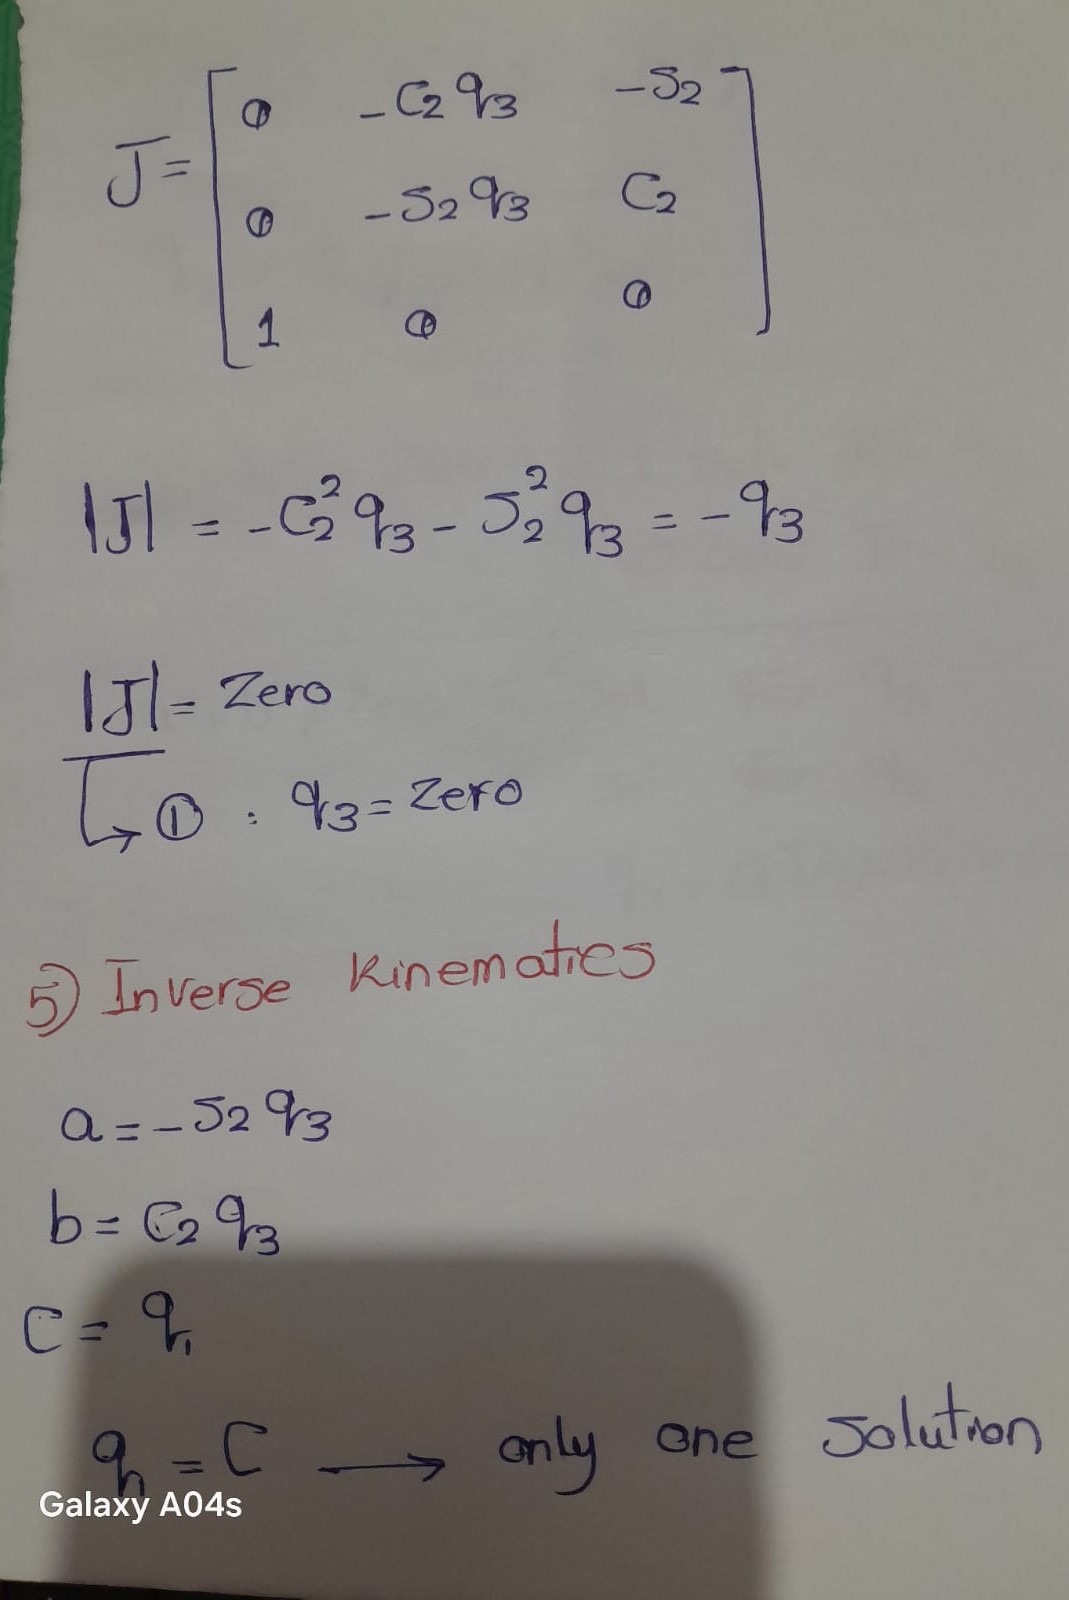 J = [ 0 -C₂q₃ -S₂
0 -S₂q₃ C₂
1 0 0 ]
|J| = -C₂²q₃ - S₂²q₃ = -q₃
|J| = Zero
↳ ① : q₃ = Zero
5) Inverse Kinematics
a = -S₂q₃
b = C₂q₃
C = q₁
q₁ = C → only one solution
Galaxy A04s